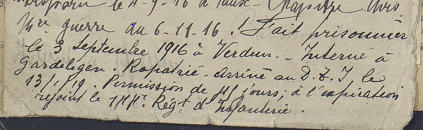 le 4-9-16 à
Mre guerre du 6-11-16 ! Fait prisonnier
le 3 septembre 1916 à Verdun. - Interné à
Gardelegen. Rapatrié - arrivé au D. T. I, le
13/1/19. Permission de jours; à l'expiration
rejoint le Régt d'Infanterie.